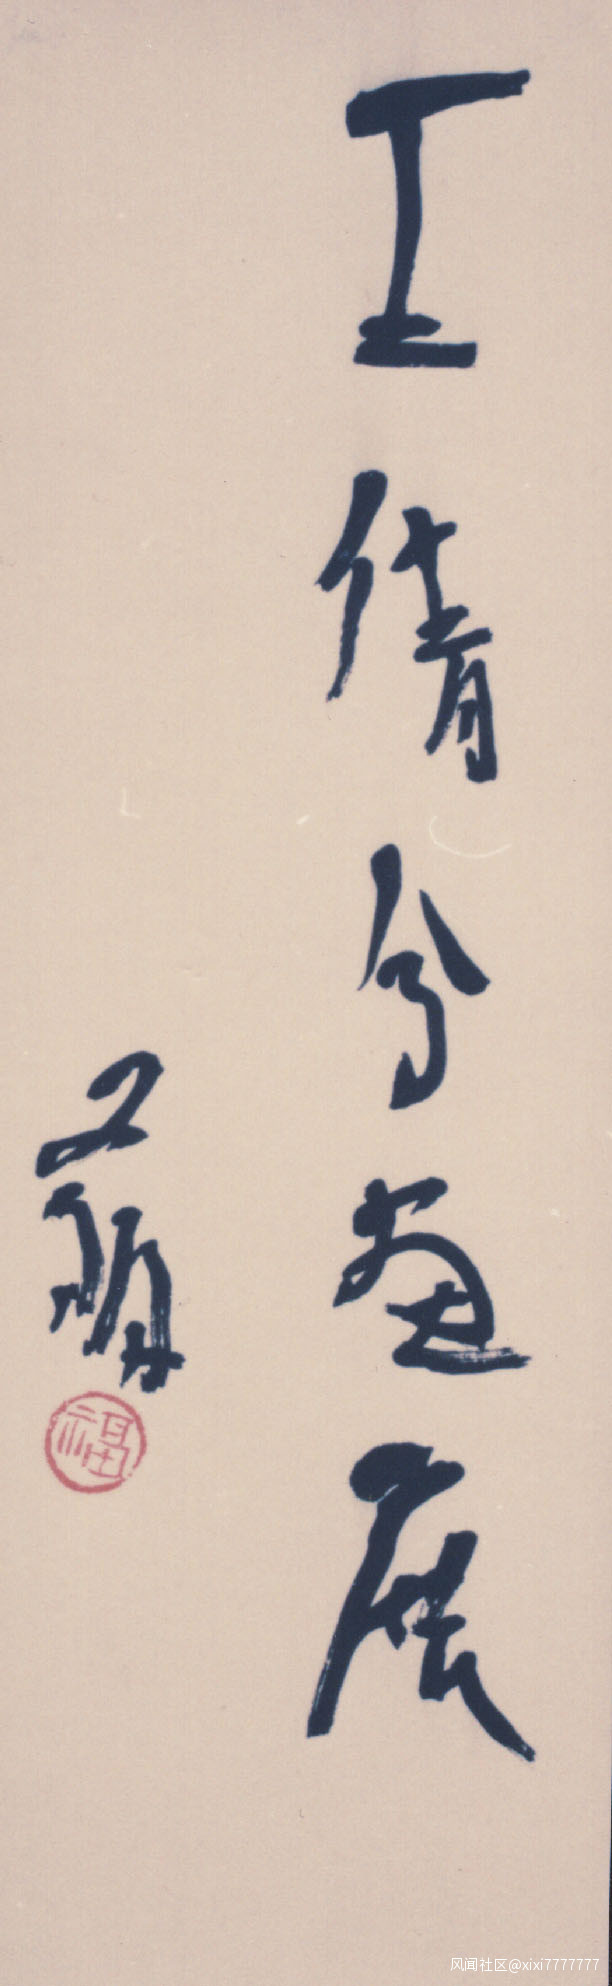 王倩兮画展
福
风闻社区@xixi7777777